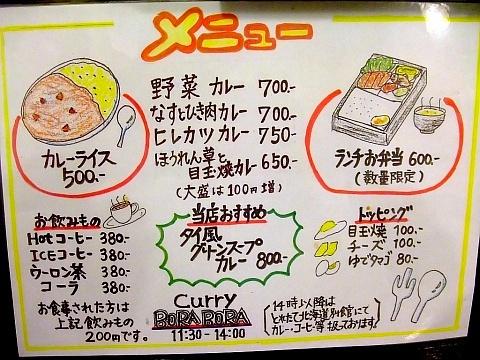 メニュー
カレーライス
500.-
野菜 カレー 700.-
なすとひき肉カレー 700.-
ヒレカツカレー 750-
ほうれん草と
目玉焼カレー 650.-
(大盛は100円増)
ランチお弁当 600.-
(数量限定)
お飲みもの
Hotコーヒー 380.-
ICEコーヒー 380.-
ウーロン茶 380.-
コーラ 380.-
お食事された方は
上記飲みもの
200円です。
当店おすすめ
タイ風
グリーンスープ
カレー 800.-
Curry
BORA BORA
11:30-14:00
トッピング
目玉焼 100.-
チーズ 100.-
ゆでタマゴ 80.-
14時以降は
とれたて北海道別館にて
カレー・コーヒー等扱っております!